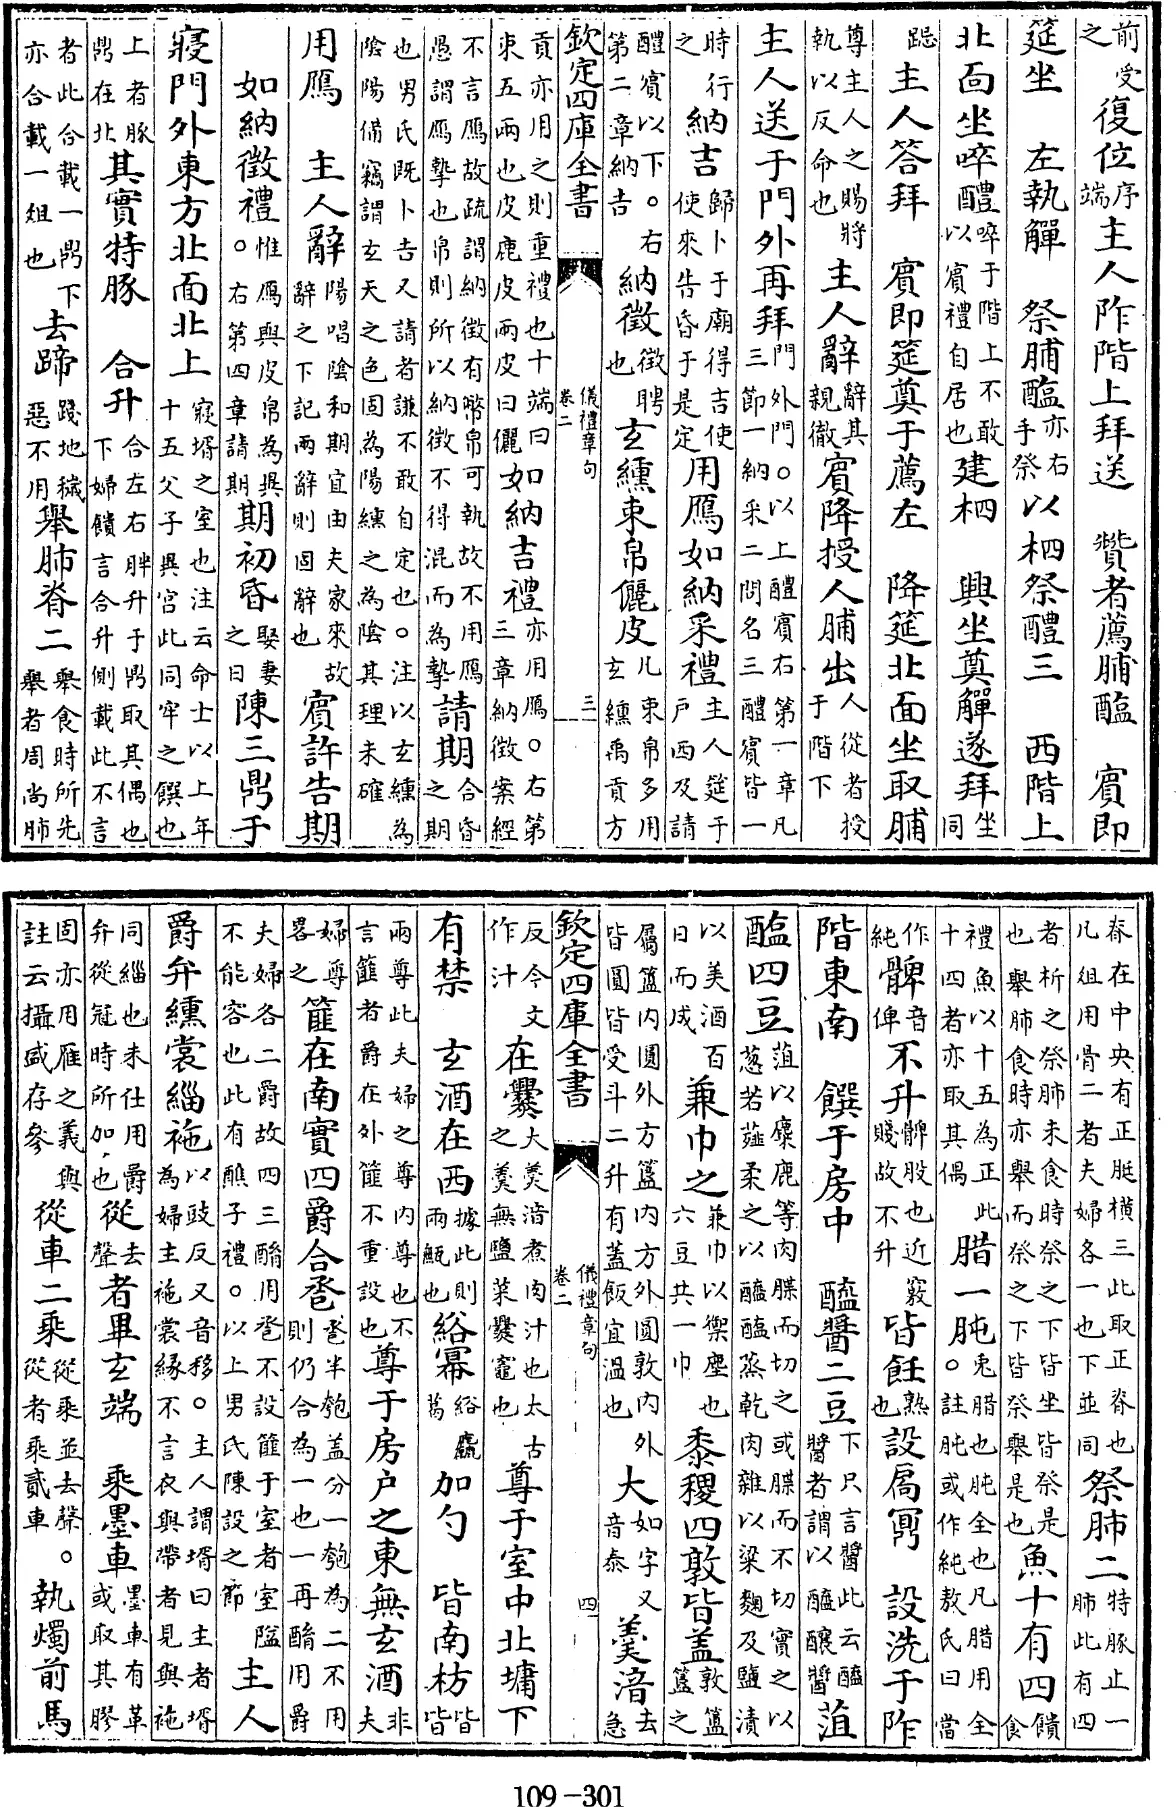 前受之復位序端主人阼階上拜送　贊者薦脯醢　賓即
筵坐　左執觶　祭脯醢亦右手祭以柶祭醴三　西階上
北面坐啐醴啐于階上不敢以賓禮自居也建柶　興坐奠觶遂拜坐同
跽　主人答拜　賓即筵奠于薦左　降筵北面坐取脯
尊主人之賜將執以反命也　主人辭辭其親徹賓降授人脯出人從者授于階下
主人送于門外再拜門外門○以上醴賓右第一章凡三節一納采二問名三醴賓皆一
時行之　納吉歸卜于廟得吉使使來告昏于是定用鴈如納采禮主人筵于戶西及請
醴賓以下○右第二章納吉　納徵徵聘也　玄纁束帛儷皮凡束帛多用玄纁禹貢方
欽定四庫全書　儀禮章句卷二　三
貢亦用之則重禮也十端曰束五兩也皮鹿皮兩皮曰儷如納吉禮亦用鴈○右第三章納徵案經
不言鴈故疏謂納徵有幣帛可執故不用鴈愚謂鴈摯也帛則所以納徵不得混而為摯請期合昏之期
也男氏既卜吉又請者謙不敢自定也○注以玄纁為陰陽備竊謂玄天之色固為陽纁之為陰其理未確
用鴈　主人辭陽唱陰和期宜由夫家來故辭之下記兩辭則固辭也　賓許告期
如納徵禮惟鴈與皮帛為異○右第四章請期期初昏娶妻之日陳三鼎于
寢門外東方北面北上寢壻之室也注云命士以上年十五父子異宮此同牢之饌也
上者豚鼎在北其實特豚　合升合左右胖升于鼎取其偶也下婦饋言合升側載此不言
者此合載一鼎下亦合載一俎也去蹄踐地穢惡不用舉肺脊二舉食時所先舉者周尚肺
脊在中央有正脡橫三此取正脊也凡俎用骨二者夫婦各一也下並同祭肺二特豚止一肺此有四
者析之祭肺未食時祭之下皆坐皆祭是也舉肺食時亦舉而祭之下皆祭舉是也魚十有四饋食
禮魚以十五為正此十四者亦取其偶　腊一肫兔腊也肫全也凡腊用全○註肫或作純敖氏曰當
作純髀音俾不升髀股也近竅賤故不升　皆飪熟也設扃鼏　設洗于阼
階東南　饌于房中　醯醬二豆下只言醬此云醯醬者謂以醯釀醬菹
醢四豆菹以麋鹿等肉䐑而切之或䐑而不切實之以蔥若薤柔之以醯醢蒸乾肉雜以粱麴及鹽漬
以美酒百日而成兼巾之兼巾以禦塵也六豆共一巾　黍稷四敦皆蓋敦簋簠之
屬簠內圓外方簋內方外圓敦內外皆圓皆受斗二升有蓋飯宜溫也　大如字又音泰羹湆去急
欽定四庫全書　儀禮章句卷二　四
反今文作汁　在爨大羹湆煮肉汁也太古之羹無鹽菜爨竈也　尊于室中北墉下
有禁　玄酒在西據此則兩甒也綌冪綌麤葛加勺　皆南枋皆
兩尊此夫婦之尊內尊也不言篚者爵在外篚不重設也尊于房戶之東無玄酒非夫
婦尊畧之　篚在南實四爵合卺卺半匏蓋分一匏為二不用則仍合為一也一再酳用爵
夫婦各二爵故四三酳用卺不設篚于室者室隘不能容也此有醮子禮○以上男氏陳設之節　主人
爵弁纁裳緇袘以豉反又音移○主人謂壻曰主者壻為婦主袘裳緣不言衣與帶者見與袘
同緇也未仕用爵弁從冠時所加也從去聲者畢玄端　乘墨車墨車有革或取其膠
固亦用雁之義與註云攝盛存參　從車二乘從乘並去聲○從者乘貳車　執燭前馬
109-301